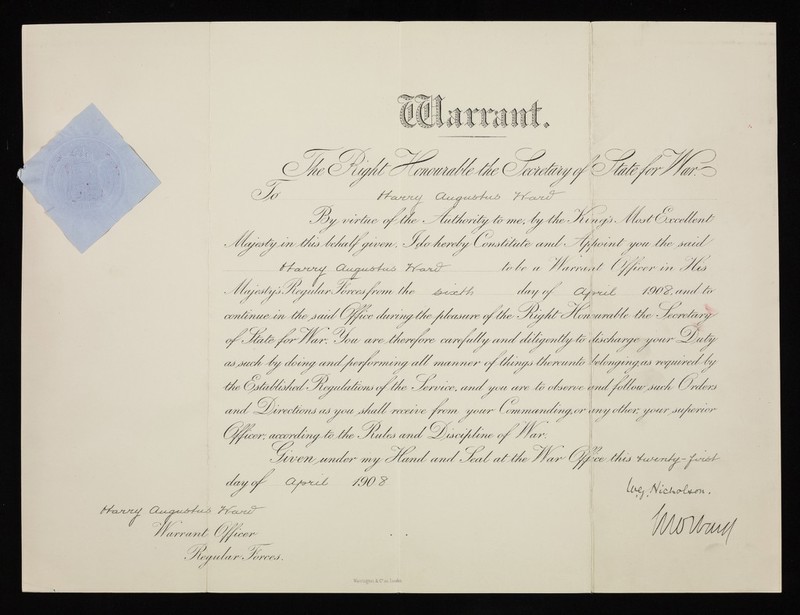 Warrant.
The Right Honourable the Secretary of State for War
To Harry Augustus Ward
By virtue of the Authority to me, by the King's Most Excellent
Majesty in this behalf given, I do hereby Constitute and Appoint you the said
Harry Augustus Ward to be a Warrant Officer in His
Majesty's Regular Forces from the sixth day of April 1908 and to
continue in the said Office during the pleasure of the Right Honourable the Secretary
of State for War. You are therefore carefully and diligently to discharge your Duty
as such by doing and performing all manner of things thereunto belonging as required by
the Established Regulations of the Service, and you are to observe and follow such Orders
and Directions as you shall receive from your Commanding, or any other, your superior
Officer, according to the Rules and Discipline of War.
Given under my Hand and Seal at the War Office this twenty-first
day of April 1908
W.G. Nicholson.
Harry Augustus Ward
Warrant Officer
Regular Forces.